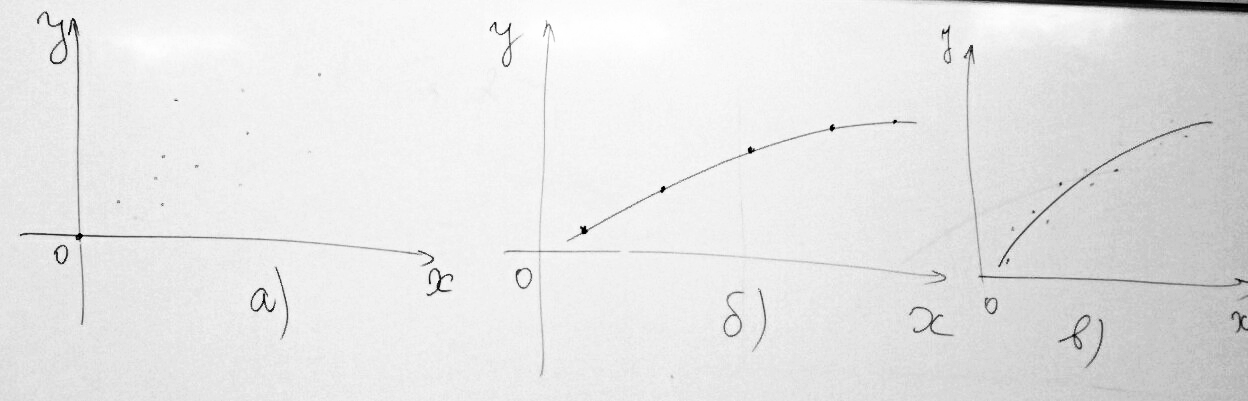 y
0
x
а)
y
0
x
б)
y
0
x
в)